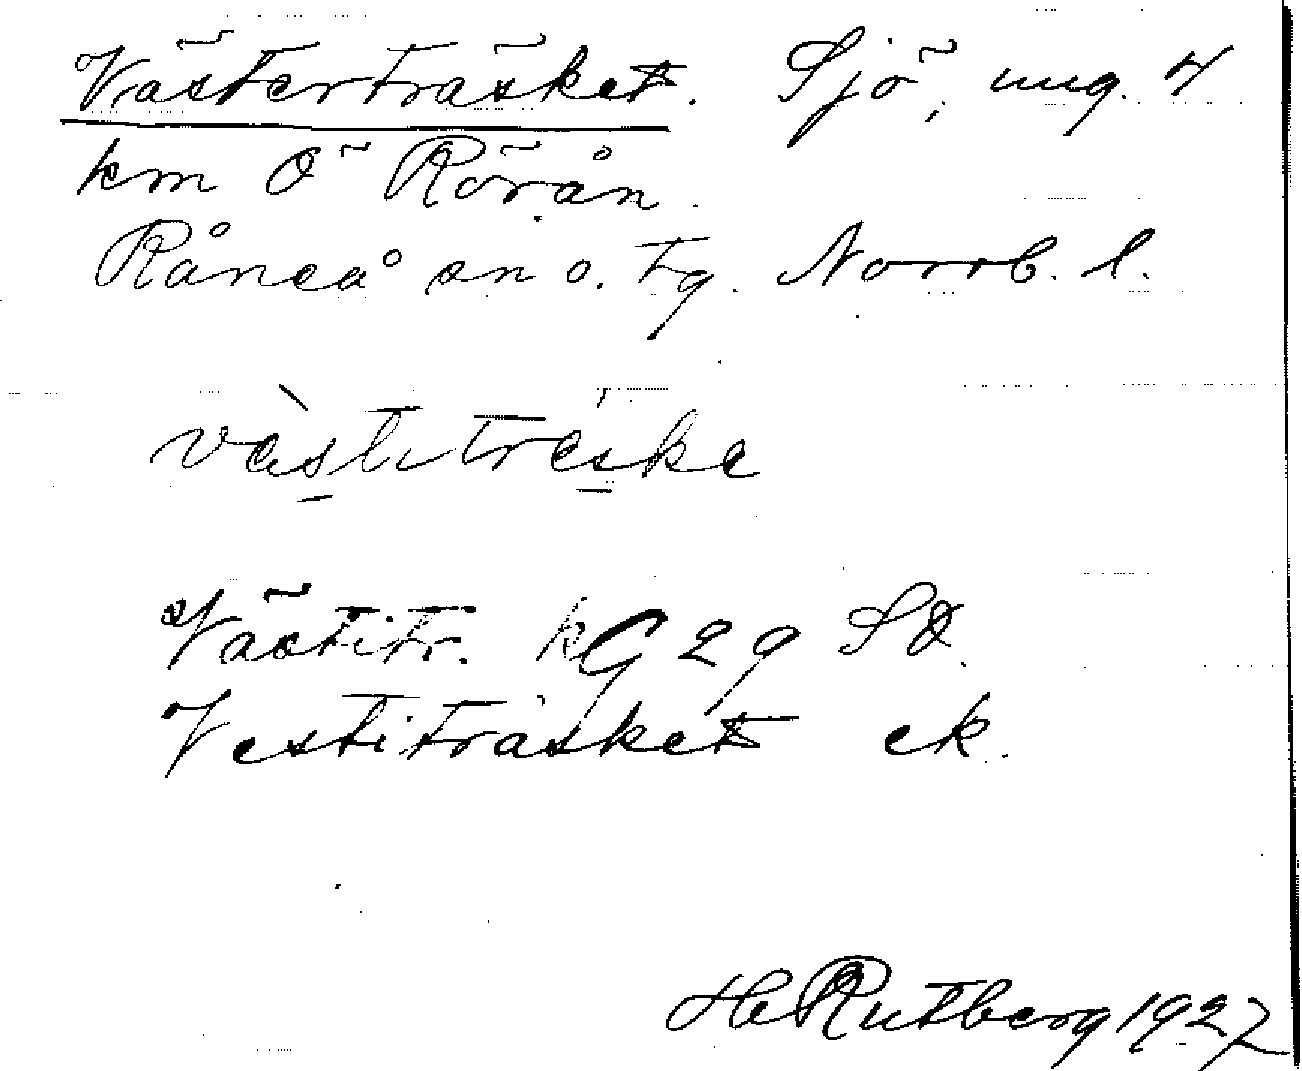 Västerträsket. Sjö, ung. 7
km Ö Rörån.
Råneå sn o. tg. Norrb. l.
vèstitrèske
Västitr. kG 29 SO.
Vestiträsket ek.
He Rutberg 1927